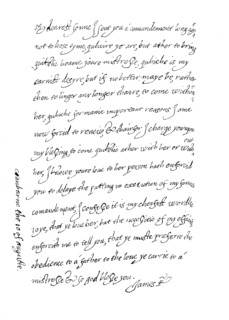 My dearest sonne I sent you a comandement long ago
not to lose tyme, quhaire ye are, but ather to bring
quiklie hoame youre mistresse, quhiche is my
earnist desyre, but if no better maye be, rather
then to linger any longer thaire, to come without
her, quhiche for manie important reasons I ame
now forcid to renew & thairfor I charge you upon
my blessing to come quiklie ather with her or without
her, I knowe youre love to her person hath enforced
you to delaye the putting in execution of my former
comandement, I confesse it is my cheifest worldlie
joye, that ye love her, but the necessitie of my effaires
enforcith me to tell you, that ye muste præferre the
obedience to a father to the love ye carrie to a
mistresse & so god blesse you.
James R
the 10 of auguste.